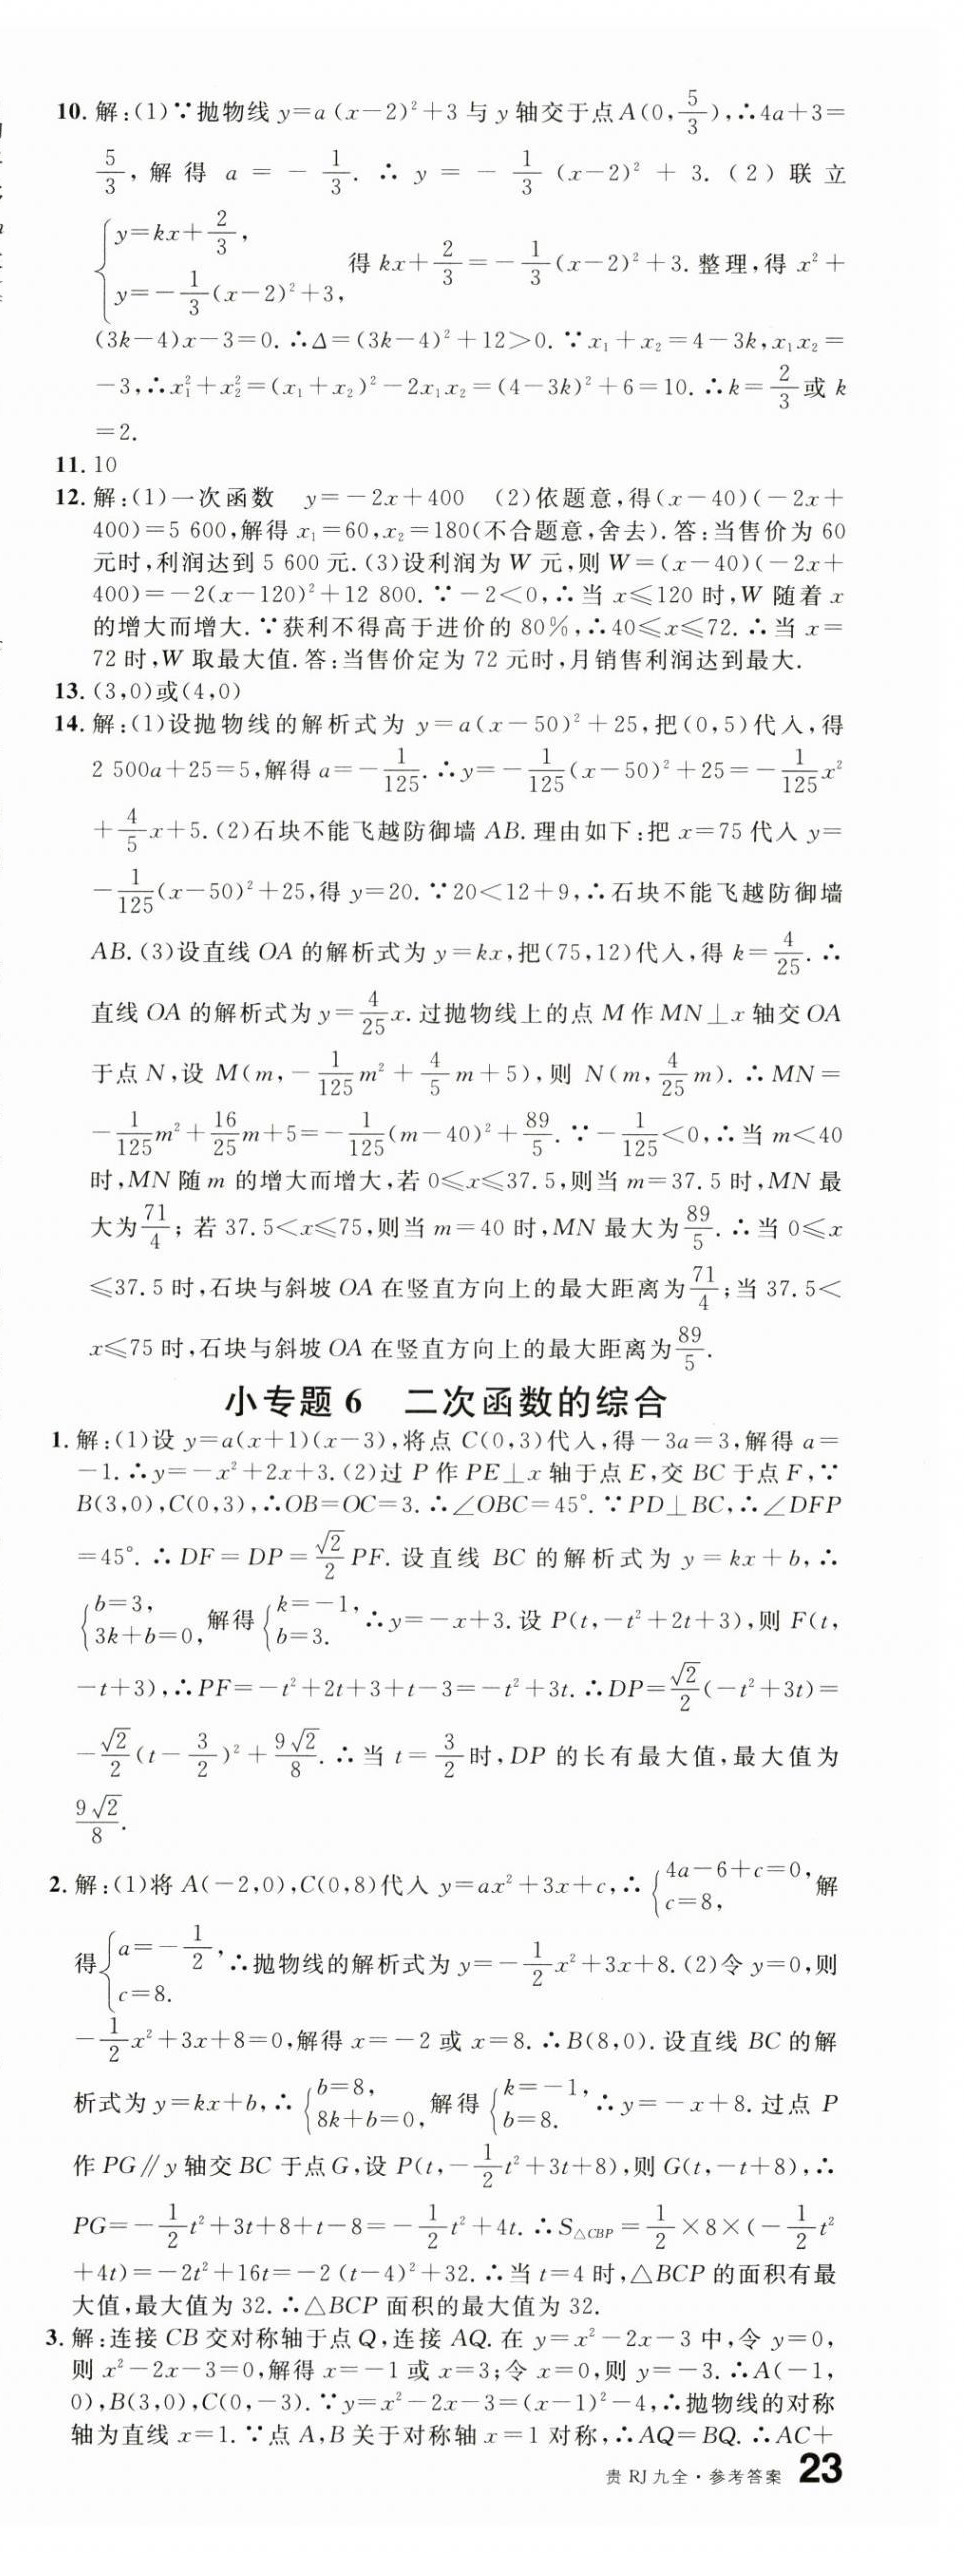 10. 解:(1)∵抛物线 y=a(x−2)²+3 与 y 轴交于点 A(0,5/3),∴4a+3=
5/3,解得 a=−1/3.∴y=−1/3(x−2)²+3.(2)联立
{y=kx+2/3, y=−1/3(x−2)²+3, 得 kx+2/3=−1/3(x−2)²+3.整理,得 x²+
(3k−4)x−3=0.∴Δ=(3k−4)²+12>0.∵x₁+x₂=4−3k,x₁x₂=
−3,∴x₁²+x₂²=(x₁+x₂)²−2x₁x₂=(4−3k)²+6=10.∴k=2/3或 k
=2.
11. 10
12. 解:(1)一次函数 y=−2x+400 (2)依题意,得(x−40)(−2x+
400)=5 600,解得 x₁=60,x₂=180(不合题意,舍去).答:当售价为 60
元时,利润达到 5 600 元.(3)设利润为 W 元,则 W=(x−40)(−2x+
400)=−2(x−120)²+12 800.∵−2<0,∴当 x≤120 时,W 随着 x
的增大而增大.∵获利不得高于进价的 80%,∴40≤x≤72.∴当 x=
72 时,W 取最大值.答:当售价定为 72 元时,月销售利润达到最大.
13. (3,0)或(4,0)
14. 解:(1)设抛物线的解析式为 y=a(x−50)²+25,把(0,5)代入,得
2 500a+25=5,解得 a=−1/125.∴y=−1/125(x−50)²+25=−1/125x²
+4/5x+5.(2)石块不能飞越防御墙 AB.理由如下:把 x=75 代入 y=
−1/125(x−50)²+25,得 y=20.∵20<12+9,∴石块不能飞越防御墙
AB.(3)设直线 OA 的解析式为 y=kx,把(75,12)代入,得 k=4/25.∴
直线 OA 的解析式为 y=4/25x.过抛物线上的点 M 作 MN⊥x 轴交 OA
于点 N,设 M(m,−1/125m²+4/5m+5),则 N(m,4/25m).∴MN=
−1/125m²+16/25m+5=−1/125(m−40)²+89/5.∵−1/125<0,∴当 m<40
时,MN 随 m 的增大而增大,若 0≤x≤37.5,则当 m=37.5 时,MN 最
大为71/4;若 37.5<x≤75,则当 m=40 时,MN 最大为89/5.∴当 0≤x
≤37.5 时,石块与斜坡 OA 在竖直方向上的最大距离为71/4;当 37.5<
x≤75 时,石块与斜坡 OA 在竖直方向上的最大距离为89/5.
小专题 6 二次函数的综合
1. 解:(1)设 y=a(x+1)(x−3),将点 C(0,3)代入,得−3a=3,解得 a=
−1.∴y=−x²+2x+3.(2)过 P 作 PE⊥x 轴于点 E,交 BC 于点 F,∵
B(3,0),C(0,3),∴OB=OC=3.∴∠OBC=45°.∵PD⊥BC,∴∠DFP
=45°.∴DF=DP=√2/2PF.设直线 BC 的解析式为 y=kx+b,∴
{b=3, 3k+b=0, 解得{k=−1, b=3. ∴y=−x+3.设 P(t,−t²+2t+3),则 F(t,
−t+3),∴PF=−t²+2t+3+t−3=−t²+3t.∴DP=√2/2(−t²+3t)=
−√2/2(t−3/2)²+9√2/8.∴当 t=3/2时,DP 的长有最大值,最大值为
9√2/8.
2. 解:(1)将 A(−2,0),C(0,8)代入 y=ax²+3x+c,∴{4a−6+c=0, c=8, 解
得{a=−1/2, c=8. ∴抛物线的解析式为 y=−1/2x²+3x+8.(2)令 y=0,则
−1/2x²+3x+8=0,解得 x=−2 或 x=8.∴B(8,0).设直线 BC 的解
析式为 y=kx+b,∴{b=8, 8k+b=0, 解得{k=−1, b=8. ∴y=−x+8.过点 P
作 PG∥y 轴交 BC 于点 G,设 P(t,−1/2t²+3t+8),则 G(t,−t+8),∴
PG=−1/2t²+3t+8+t−8=−1/2t²+4t.∴S△CBP=1/2×8×(−1/2t²
+4t)=−2t²+16t=−2(t−4)²+32.∴当 t=4 时,△BCP 的面积有最
大值,最大值为 32.∴△BCP 面积的最大值为 32.
3. 解:连接 CB 交对称轴于点 Q,连接 AQ.在 y=x²−2x−3 中,令 y=0,
则 x²−2x−3=0,解得 x=−1 或 x=3;令 x=0,则 y=−3.∴A(−1,
0),B(3,0),C(0,−3).∵y=x²−2x−3=(x−1)²−4,∴抛物线的对称
轴为直线 x=1.∵点 A,B 关于对称轴 x=1 对称,∴AQ=BQ.∴AC+
贵 RJ 九全·参考答案 23